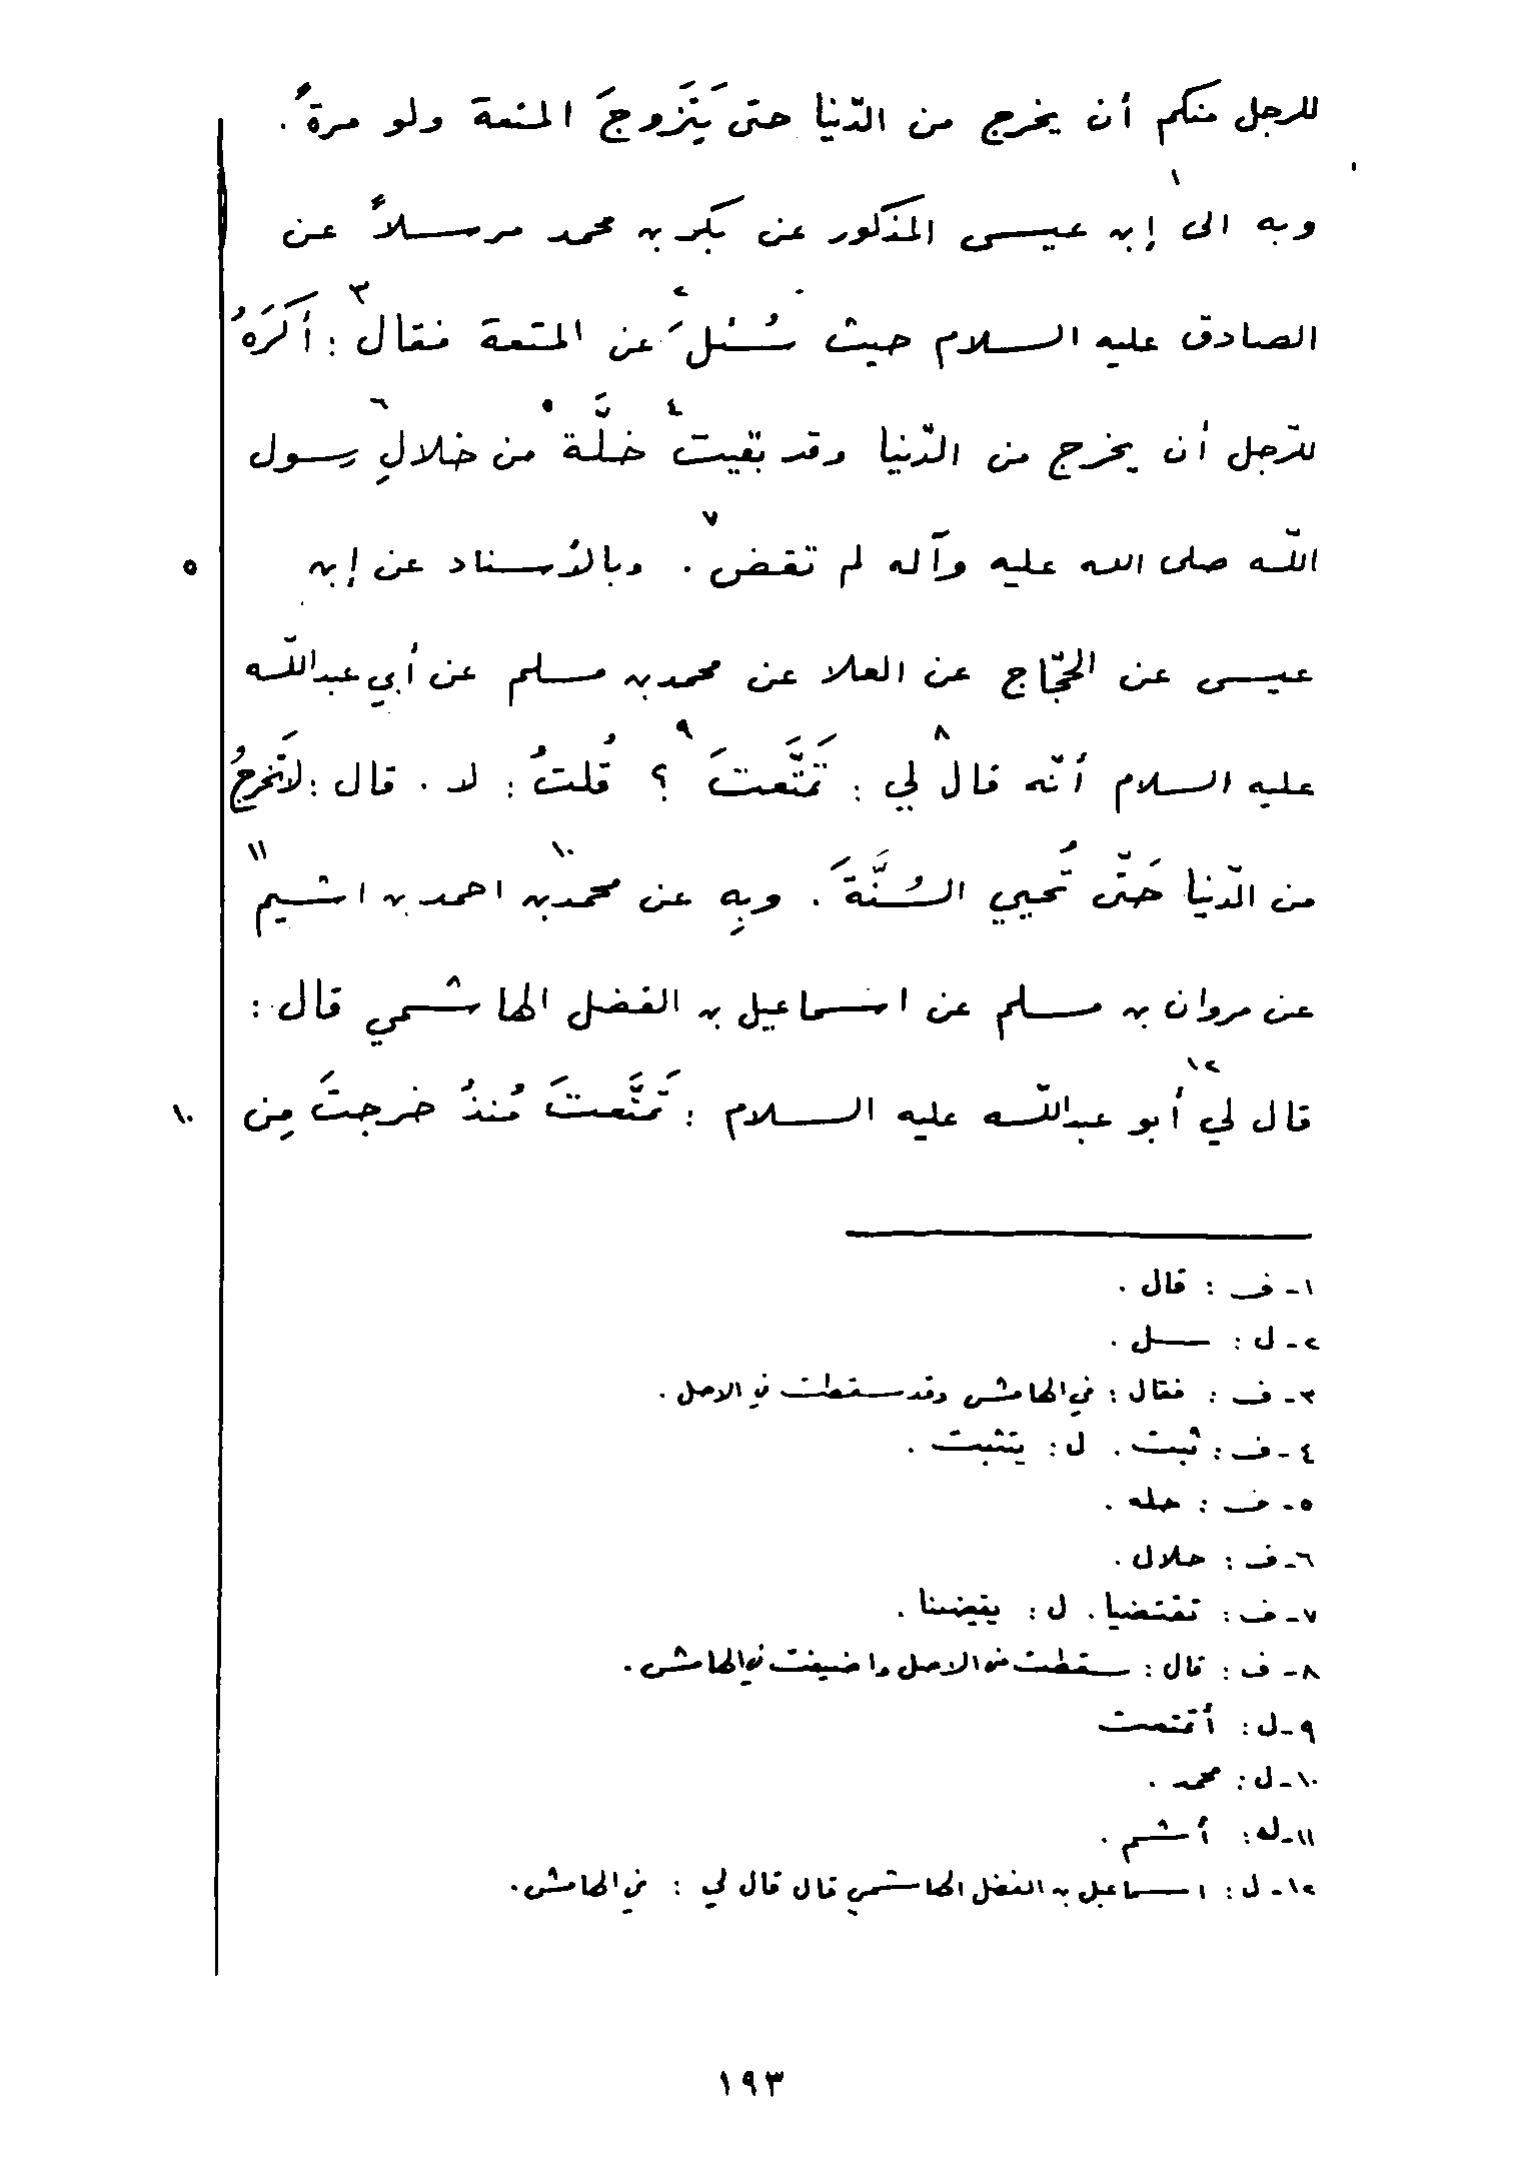 للرجل منكم أن يخرج من الدّنيا حتى يَتَزوجَ المتعة ولو مرةً .
وبه الى١ إبن عيسى المذكور عن بكر بن محمد مرسلاً عن
الصادق عليه السلام حيث سُئلَ٢ عن المتعة فقال٣ : أكرَهُ
للرّجل أن يخرج من الدّنيا وقد بقيت٤ خلَّة٥ من خلالِ٦ رسول
اللّه صلى الله عليه وآله لم تقض٧ . وبالأسناد عن إبن
٥
عيسى عن الحجّاج عن العلا عن محمد بن مسلم عن أبي عبداللّه
عليه السلام أنّه قال٨ لي : تَمَتَّعتَ٩ ؟ قُلتُ : لا . قال : لاتَخرجُ
من الدّنيا حَتّى تُحيي السُنَّةَ . وبِه عن محمد١٠ بن احمد بن اشيم١١
عن مروان بن مسلم عن اسماعيل بن الفضل الهاشمي قال :
قال لي١٢ أبو عبداللّه عليه السلام : تَمَتَّعتَ مُنذُ خرجتَ مِن
١٠
١- ف : قال .
٢- ل : سل .
٣- ف : فقال : في الهامش وقد سقطت في الاصل .
٤- ف : ثبت . ل : يتثبت .
٥- ف : حله .
٦- ف : حلال .
٧- ف : تقتضيا . ل : يقيضنا .
٨- ف : قال : سقطت من الاصل واضيفت في الهامش .
٩- ل : أتمتعت
١٠- ل : محمد .
١١- له : أشم .
١٢- ل : اسماعيل بن الفضل الهاشمي قال قال لي : في الهامش .
١٩٣